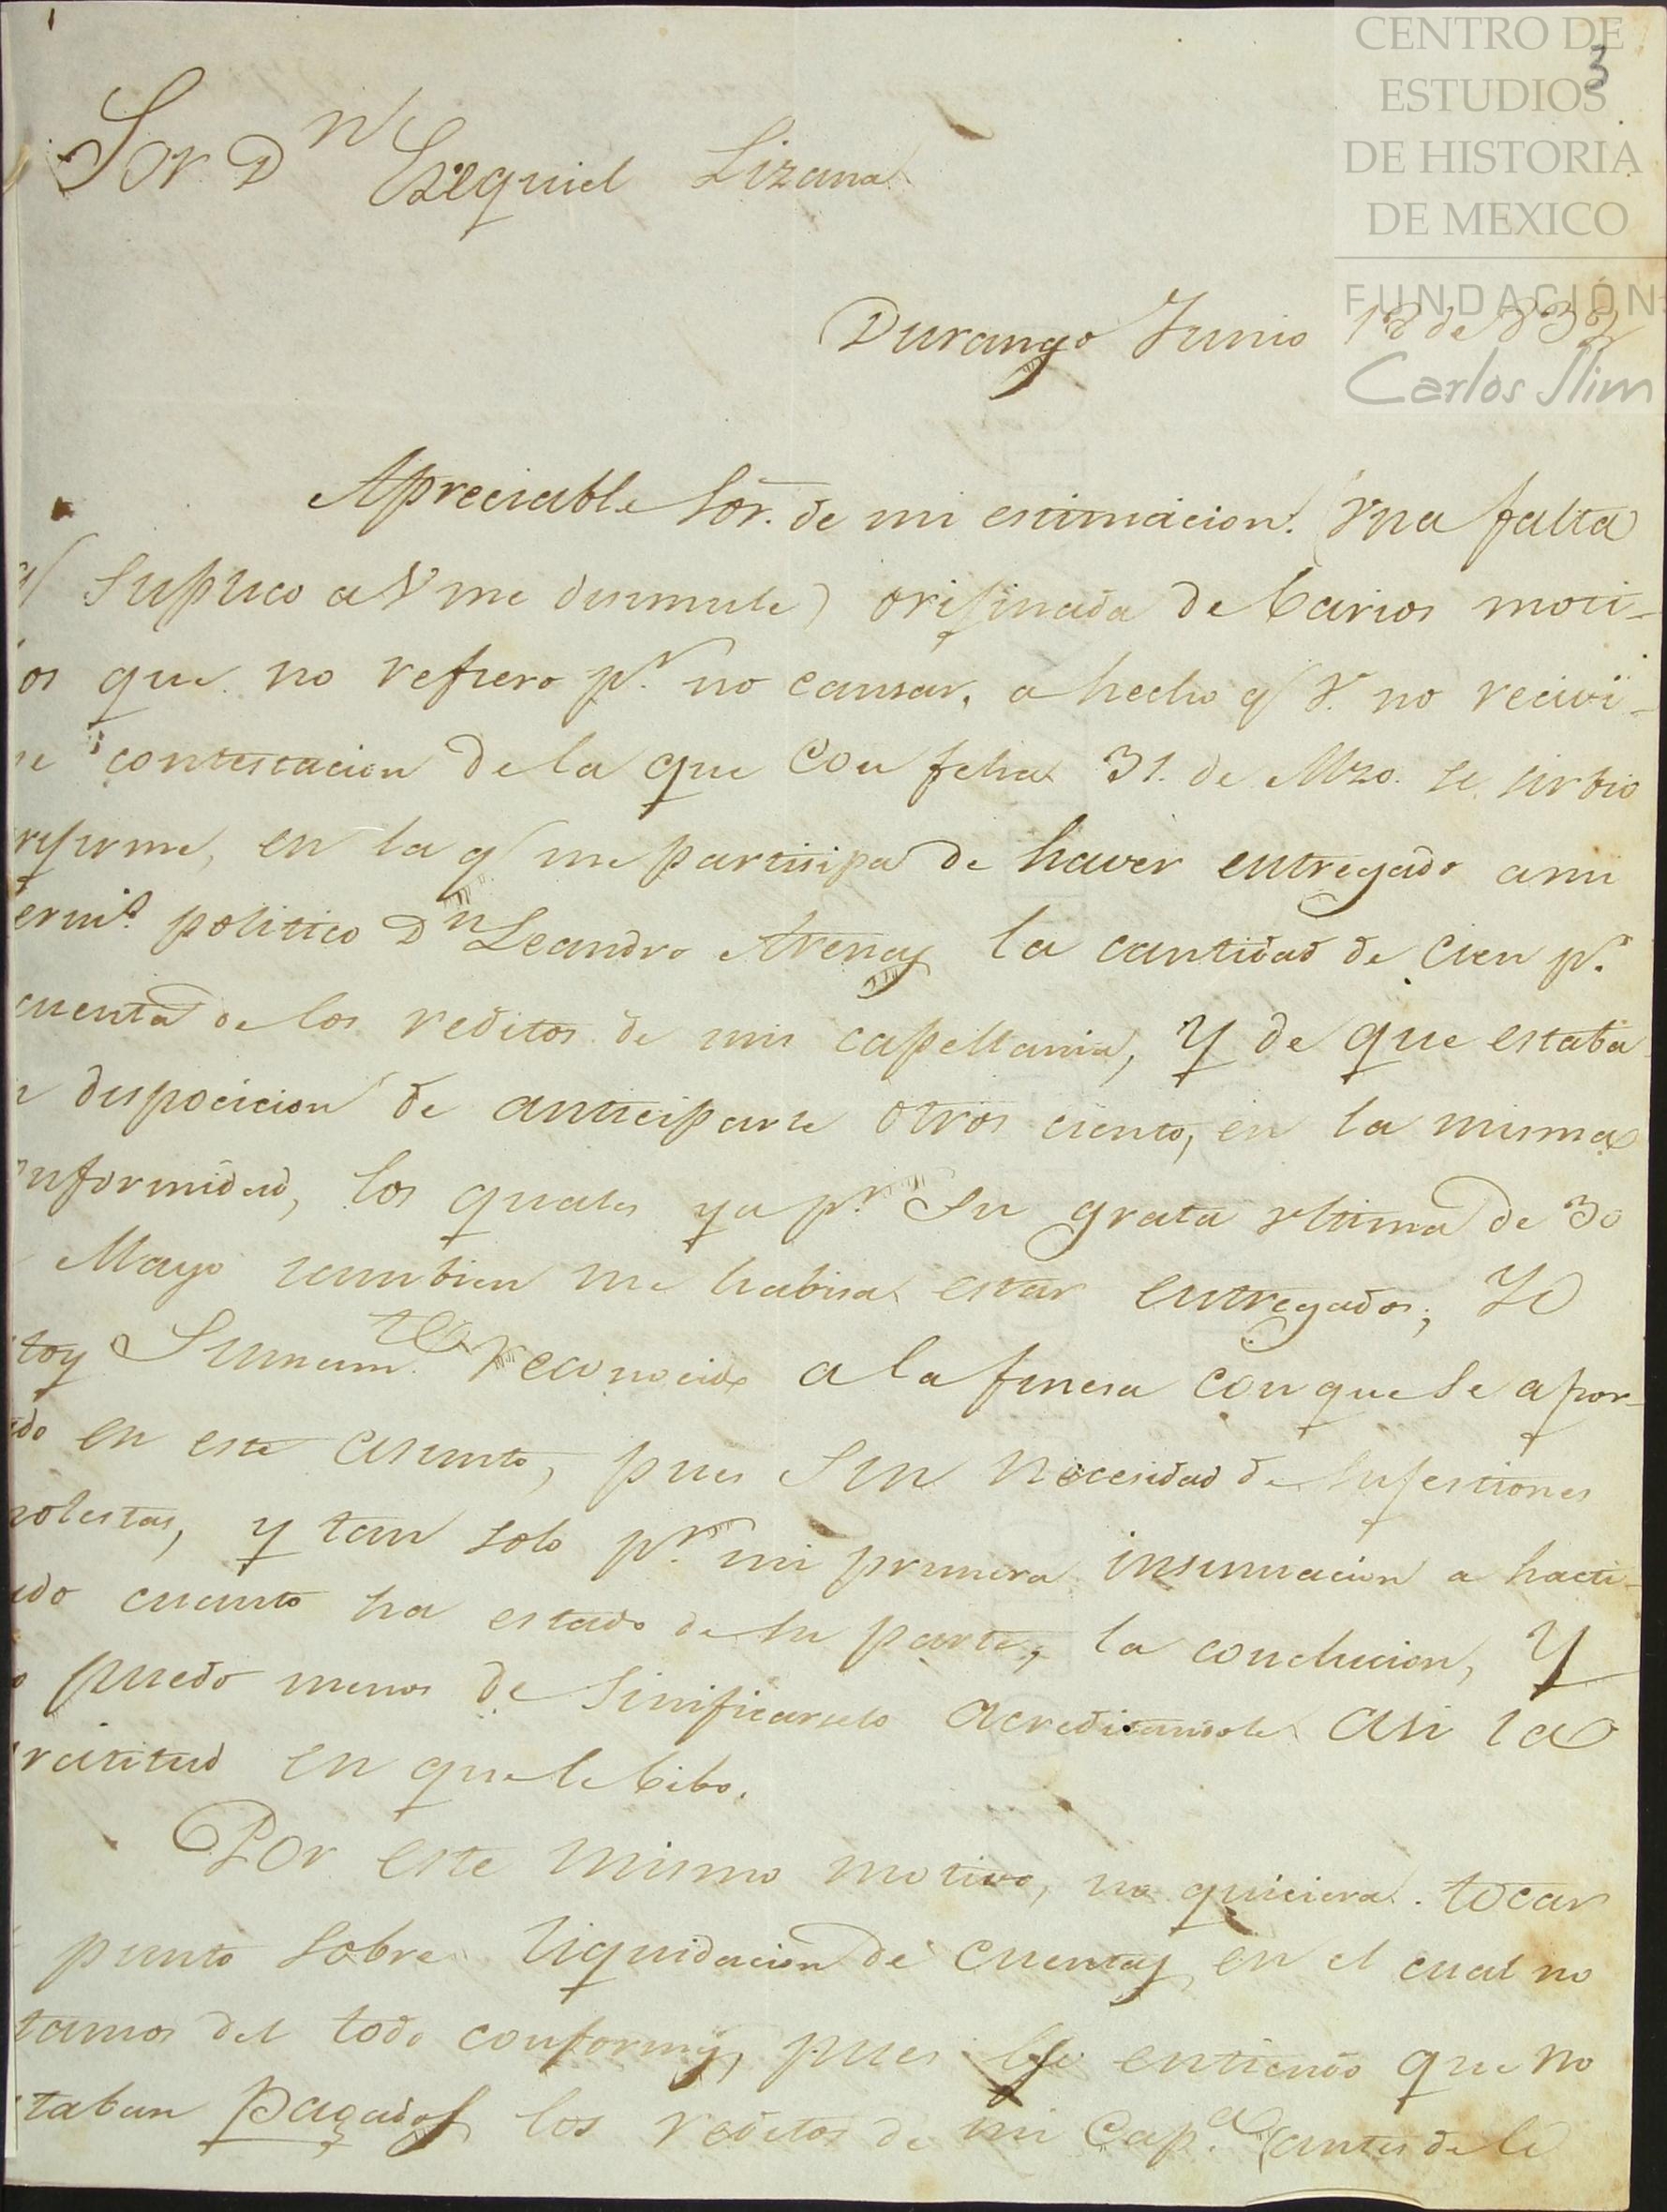 CENTRO DE
ESTUDIOS
DE HISTORIA
DE MEXICO
FUNDACIÓN
Carlos Slim
3
Sor Dn Ezequiel Lizana
Durango Junio 12 de 832
Apreciable Sor. de mi estimacion. (Una falta
q suplico a V me disimule) orijinada de barios moti-
os que no refiero pr. no cansar, a hecho q V. no recivi-
se contestacion de la que con fecha 31. de Mzo. se sirbio
rijirme, en la q me partisipa de haver entregado a mi
ermo. politico Dn Leandro Arenas la cantidad de cien ps.
cuenta de los reditos de mis capellania, y de que estaba
n dispocicion de anticiparle otros ciento, en la misma
nformidad, los quales ya pr. su grata ultima de 30
Mayo tambien me habisa estar entregados; Yo
toy Sumamte. reconocido a la finesa con que se a por-
ado en este asunto, pues sin necesidad de sujestiones
molestas, y tan solo pr. mi primera insinuacion a hacti-
ado cuanto ha estado de su parte, la conclucion, y
o puedo menos de sinificarselo acreditandole asi la
ratitud en que le bibo.
Por este mismo motivo, no quiciera tocar
punto sobre liquidacion de cuentas en el cual no
tamos del todo conformes, pues yo entiendo que no
taban pagados los reditos de mi Capa. (antes de le